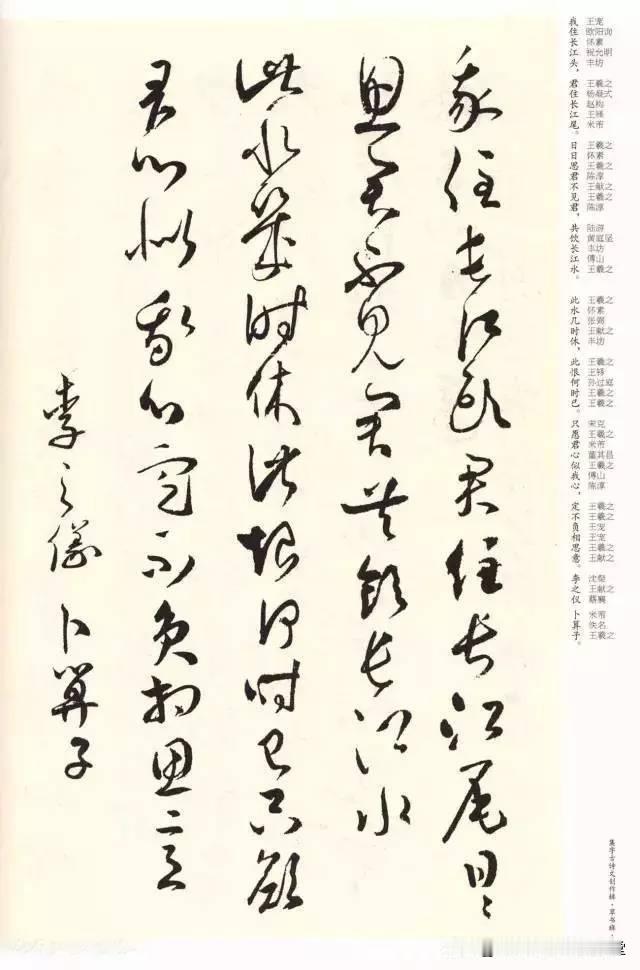 王宠
欧阳询
怀素
祝允明
丰坊
王羲之
杨凝式
赵构
王铎
米芾
王羲之
怀素
王羲之
陈淳
王献之
王羲之
陈淳
陆游
黄庭坚
丰坊
傅山
王羲之
王羲之
怀素
张弼
王献之
丰坊
王羲之
王铎
孙过庭
王羲之
王羲之
宋克
王羲之
米芾
董其昌
王羲之
傅山
陈淳
王羲之
王羲之
王宠
王宠
王羲之
王献之
沈粲
王献之
蔡襄
米芾
佚名
王羲之
我住长江头，君住长江尾。日日思君不见君，共饮长江水。此水几时休，此恨何时已。只愿君心似我心，定不负相思意。李之仪 卜算子。
集字古诗文创作辑·草书辑·
堂
我住長江頭君住長江尾日日
思君不見君共飲長江水
此水幾時休此恨何時已只願
君心似我心定不負相思意
李之儀 卜算子